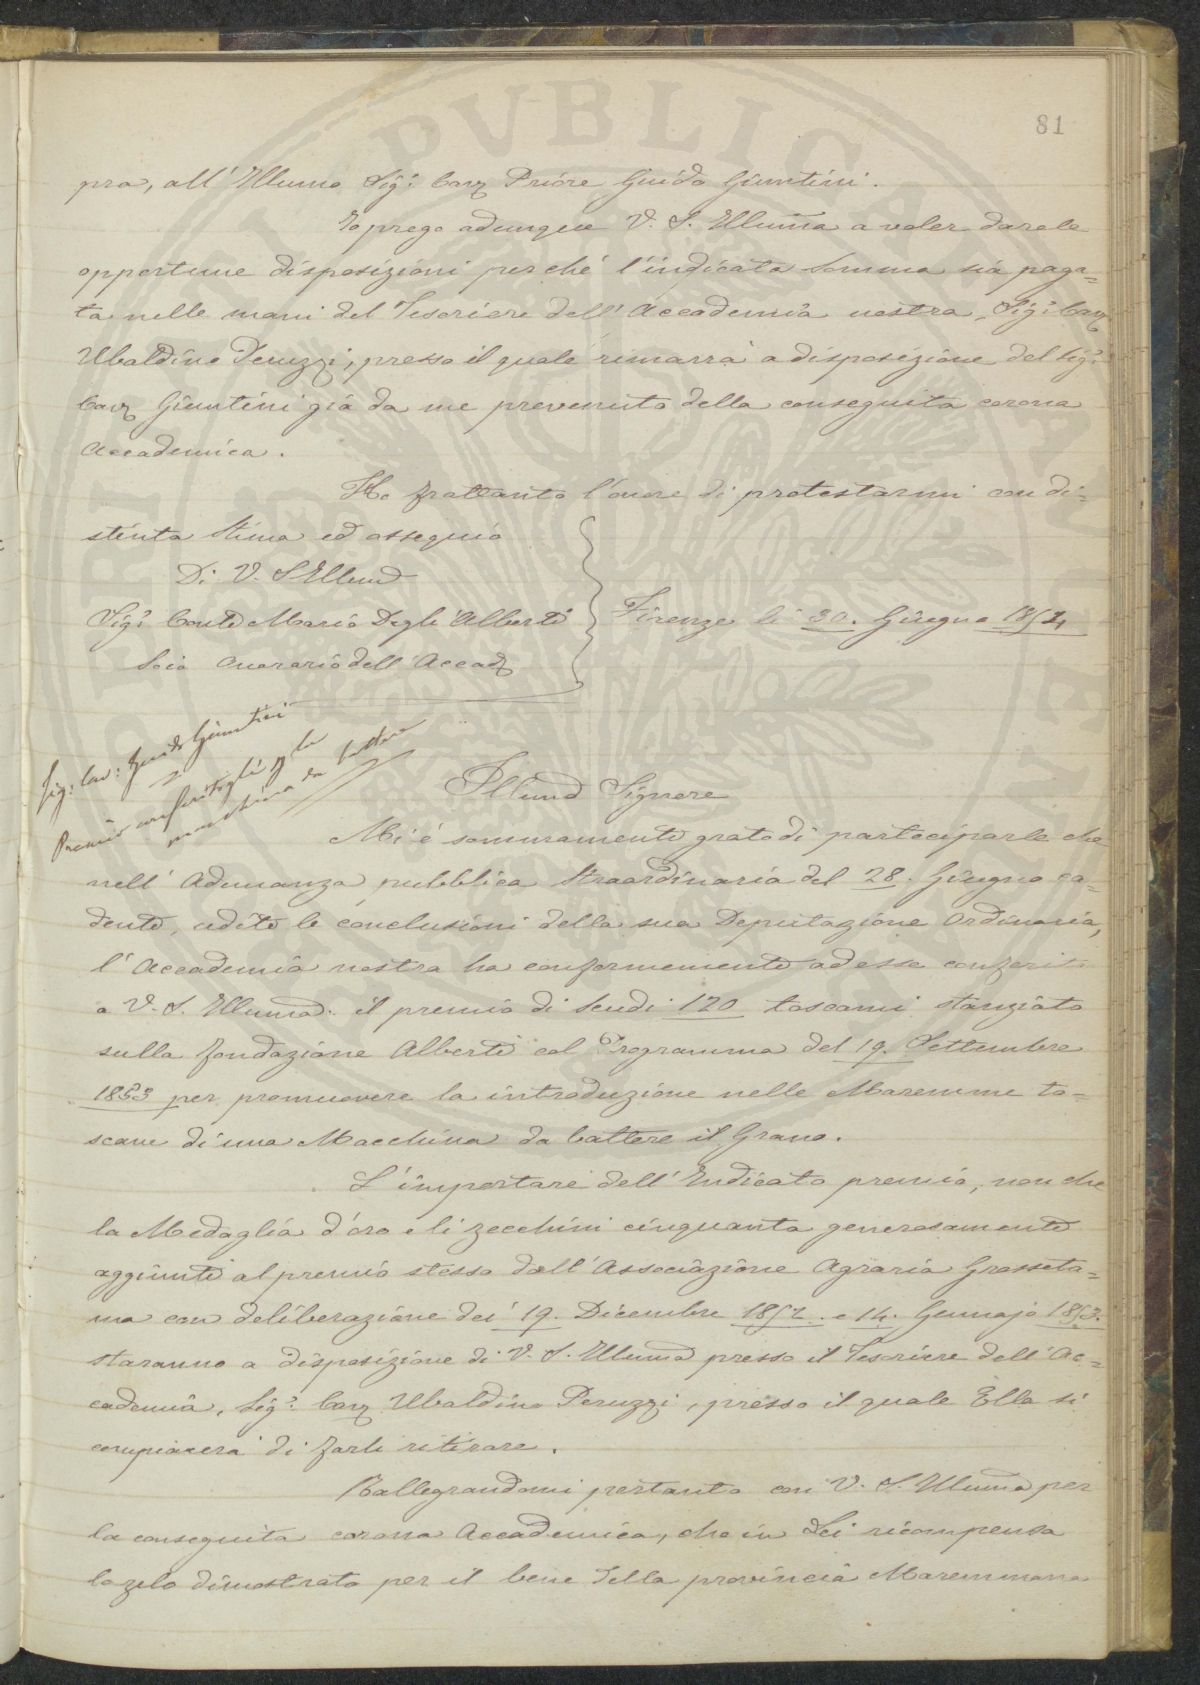 81
pra, all' Illumo Sig: Cav Priore Guido Giuntini.
Io prego adunque V. S. Illuma a voler dare le
opportune disposizioni perché l'indicata somma sia paga=
ta nelle mani del Tesoriere dell' Accademia nostra, Sig: Cav
Ubaldino Peruzzi, presso il quale rimarrà a disposizione del Sig:
Cav Giuntini già da me prevenuto della conseguita corona
Accademica.
Ho frattanto l'onore di protestarmi con di=
stinta stima ed ossequio
Di V. S. Illma
Sig: Conte Mario Degli Alberti
Socio Onorario dell' Accad
Firenze li 30. Giugno 1854
Sig: Cav: Guido Giuntini
Premio conferitogli p la
macchina da battere
Illmo Signore
Mi è sommamente grato di parteciparle che
nell' Adunanza pubblica straordinaria del 28. Giugno ca=
dente, udite le conclusioni della sua Deputazione Ordinaria,
l' Accademia nostra ha conformemente ad esse conferito
a V. S. Illuma. il premio di Scudi 120 toscani stanziato
sulla fondazione Alberti col Programma del 19. Settembre
1853 per promuovere la introduzione nelle Maremme to=
scane di una Macchina da battere il Grano.
L'importare dell' Indicato premio, non che
la Medaglia d'oro e li zecchini cinquanta generosamente
aggiunti al premio stesso dall' Associazione Agraria Grosseta=
na con deliberazione dei 19. Dicembre 1852. e 14. Gennajo 1853.
staranno a disposizione di V. S. Illuma presso il Tesoriere dell' Ac=
cademia, Sig: Cav Ubaldino Peruzzi, presso il quale Ella si
compiacerà di farli ritirare.
Rallegrandomi pertanto con V. S. Illuma per
la conseguita corona Accademica, che in Lei ricompensa
lo zelo dimostrato per il bene della provincia Maremmana